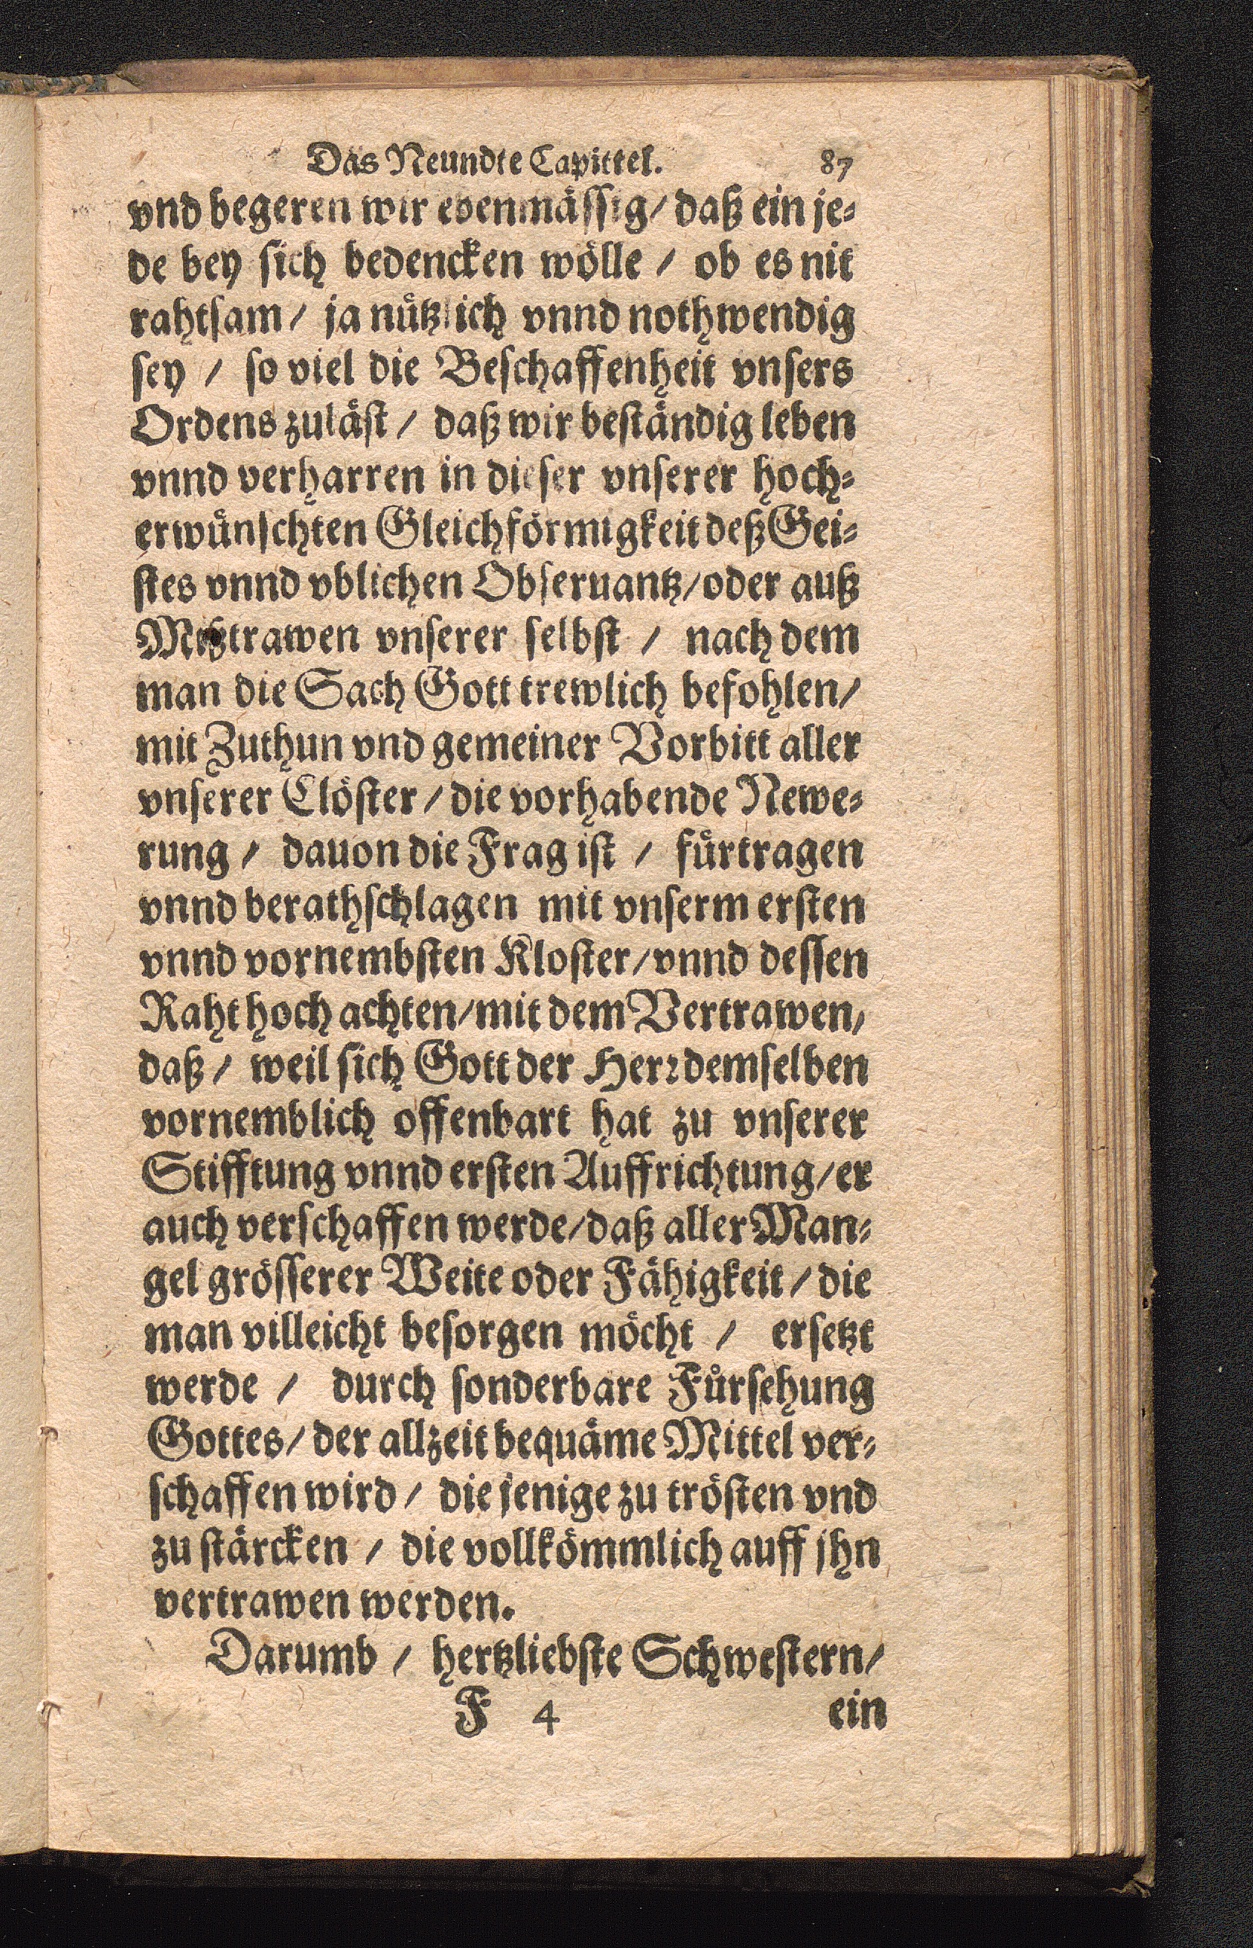 Das Neundte Capittel. 87
vnd begeren wir ebenmässig/ daß ein je-
de bey sich bedencken wölle / ob es nit
rahtsam/ ja nützlich vnnd nothwendig
sey / so viel die Beschaffenheit vnsers
Ordens zuläst / daß wir beständig leben
vnnd verharren in dieser vnserer hoch-
erwünschten Gleichförmigkeit deß Gei-
stes vnnd vblichen Obseruantz/oder auß
Mißtrawen vnserer selbst / nach dem
man die Sach Gott trewlich befohlen/
mit Zuthun vnd gemeiner Vorbitt aller
vnserer Clöster / die vorhabende Newe-
rung / dauon die Frag ist / fürtragen
vnnd berathschlagen mit vnserm ersten
vnnd vornembsten Kloster/vnnd dessen
Raht hoch achten/mit dem Vertrawen/
daß / weil sich Gott der Herr demselben
vornemblich offenbart hat zu vnserer
Stifftung vnnd ersten Auffrichtung/er
auch verschaffen werde/daß aller Man-
gel grösserer Weite oder Fähigkeit / die
man villeicht besorgen möcht / ersetzt
werde / durch sonderbare Fürsehung
Gottes/ der allzeit bequäme Mittel ver-
schaffen wird / die jenige zu trösten vnd
zu stärcken / die vollkömmlich auff jhn
vertrawen werden.
Darumb / hertzliebste Schwestern/
F 4 ein